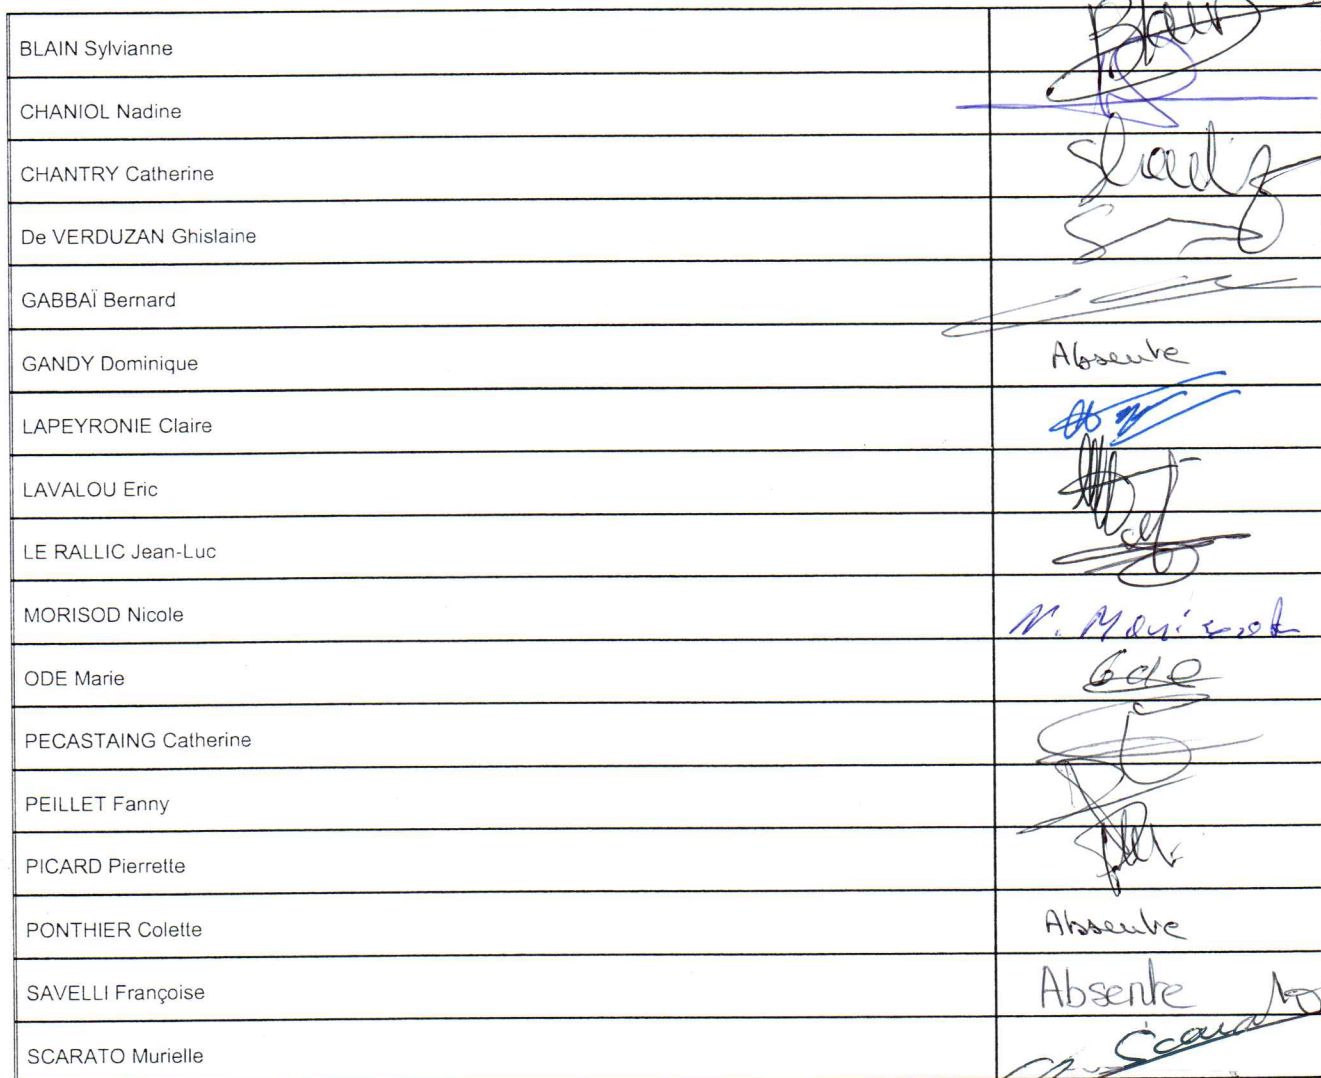 BLAIN Sylvianne Blain
CHANIOL Nadine
CHANTRY Catherine
De VERDUZAN Ghislaine
GABBAÏ Bernard
GANDY Dominique Absente
LAPEYRONIE Claire
LAVALOU Eric
LE RALLIC Jean-Luc
MORISOD Nicole N. Morisod
ODE Marie Ode
PECASTAING Catherine
PEILLET Fanny
PICARD Pierrette
PONTHIER Colette Absente
SAVELLI Françoise Absente
SCARATO Murielle Scarato